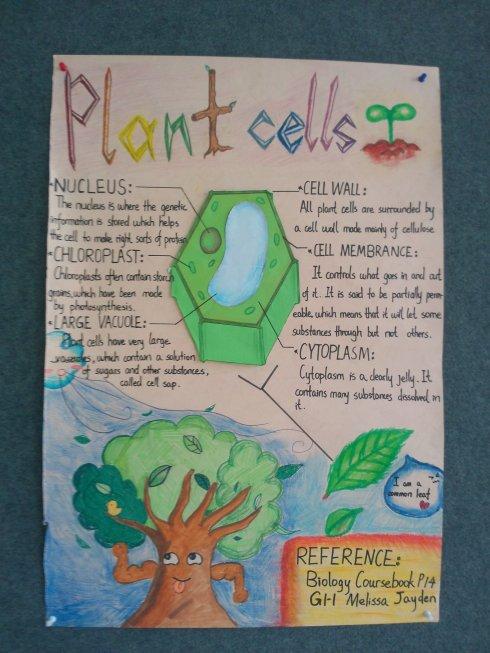 Plant cells
NUCLEUS:
The nucleus is where the genetic
information is stored which helps
the cell to make right sorts of protein
CHLOROPLAST:
Chloroplasts often contain starch
grains, which have been made
by photosynthesis.
LARGE VACUOLE:
Plant cells have very large
vacuoles, which contain a solution
of sugars and other substances,
called cell sap.
CELL WALL:
All plant cells are surrounded by
a cell wall made mainly of cellulose
CELL MEMBRANCE:
It controls what goes in and out
of it. It is said to be partially perm-
eable, which means that it will let some
substances through but not others.
CYTOPLASM:
Cytoplasm is a clearly jelly. It
contains many substances dissolved in
it.
I am a
common leaf
REFERENCE:
Biology Coursebook P14
G1-1 Melissa Jayden